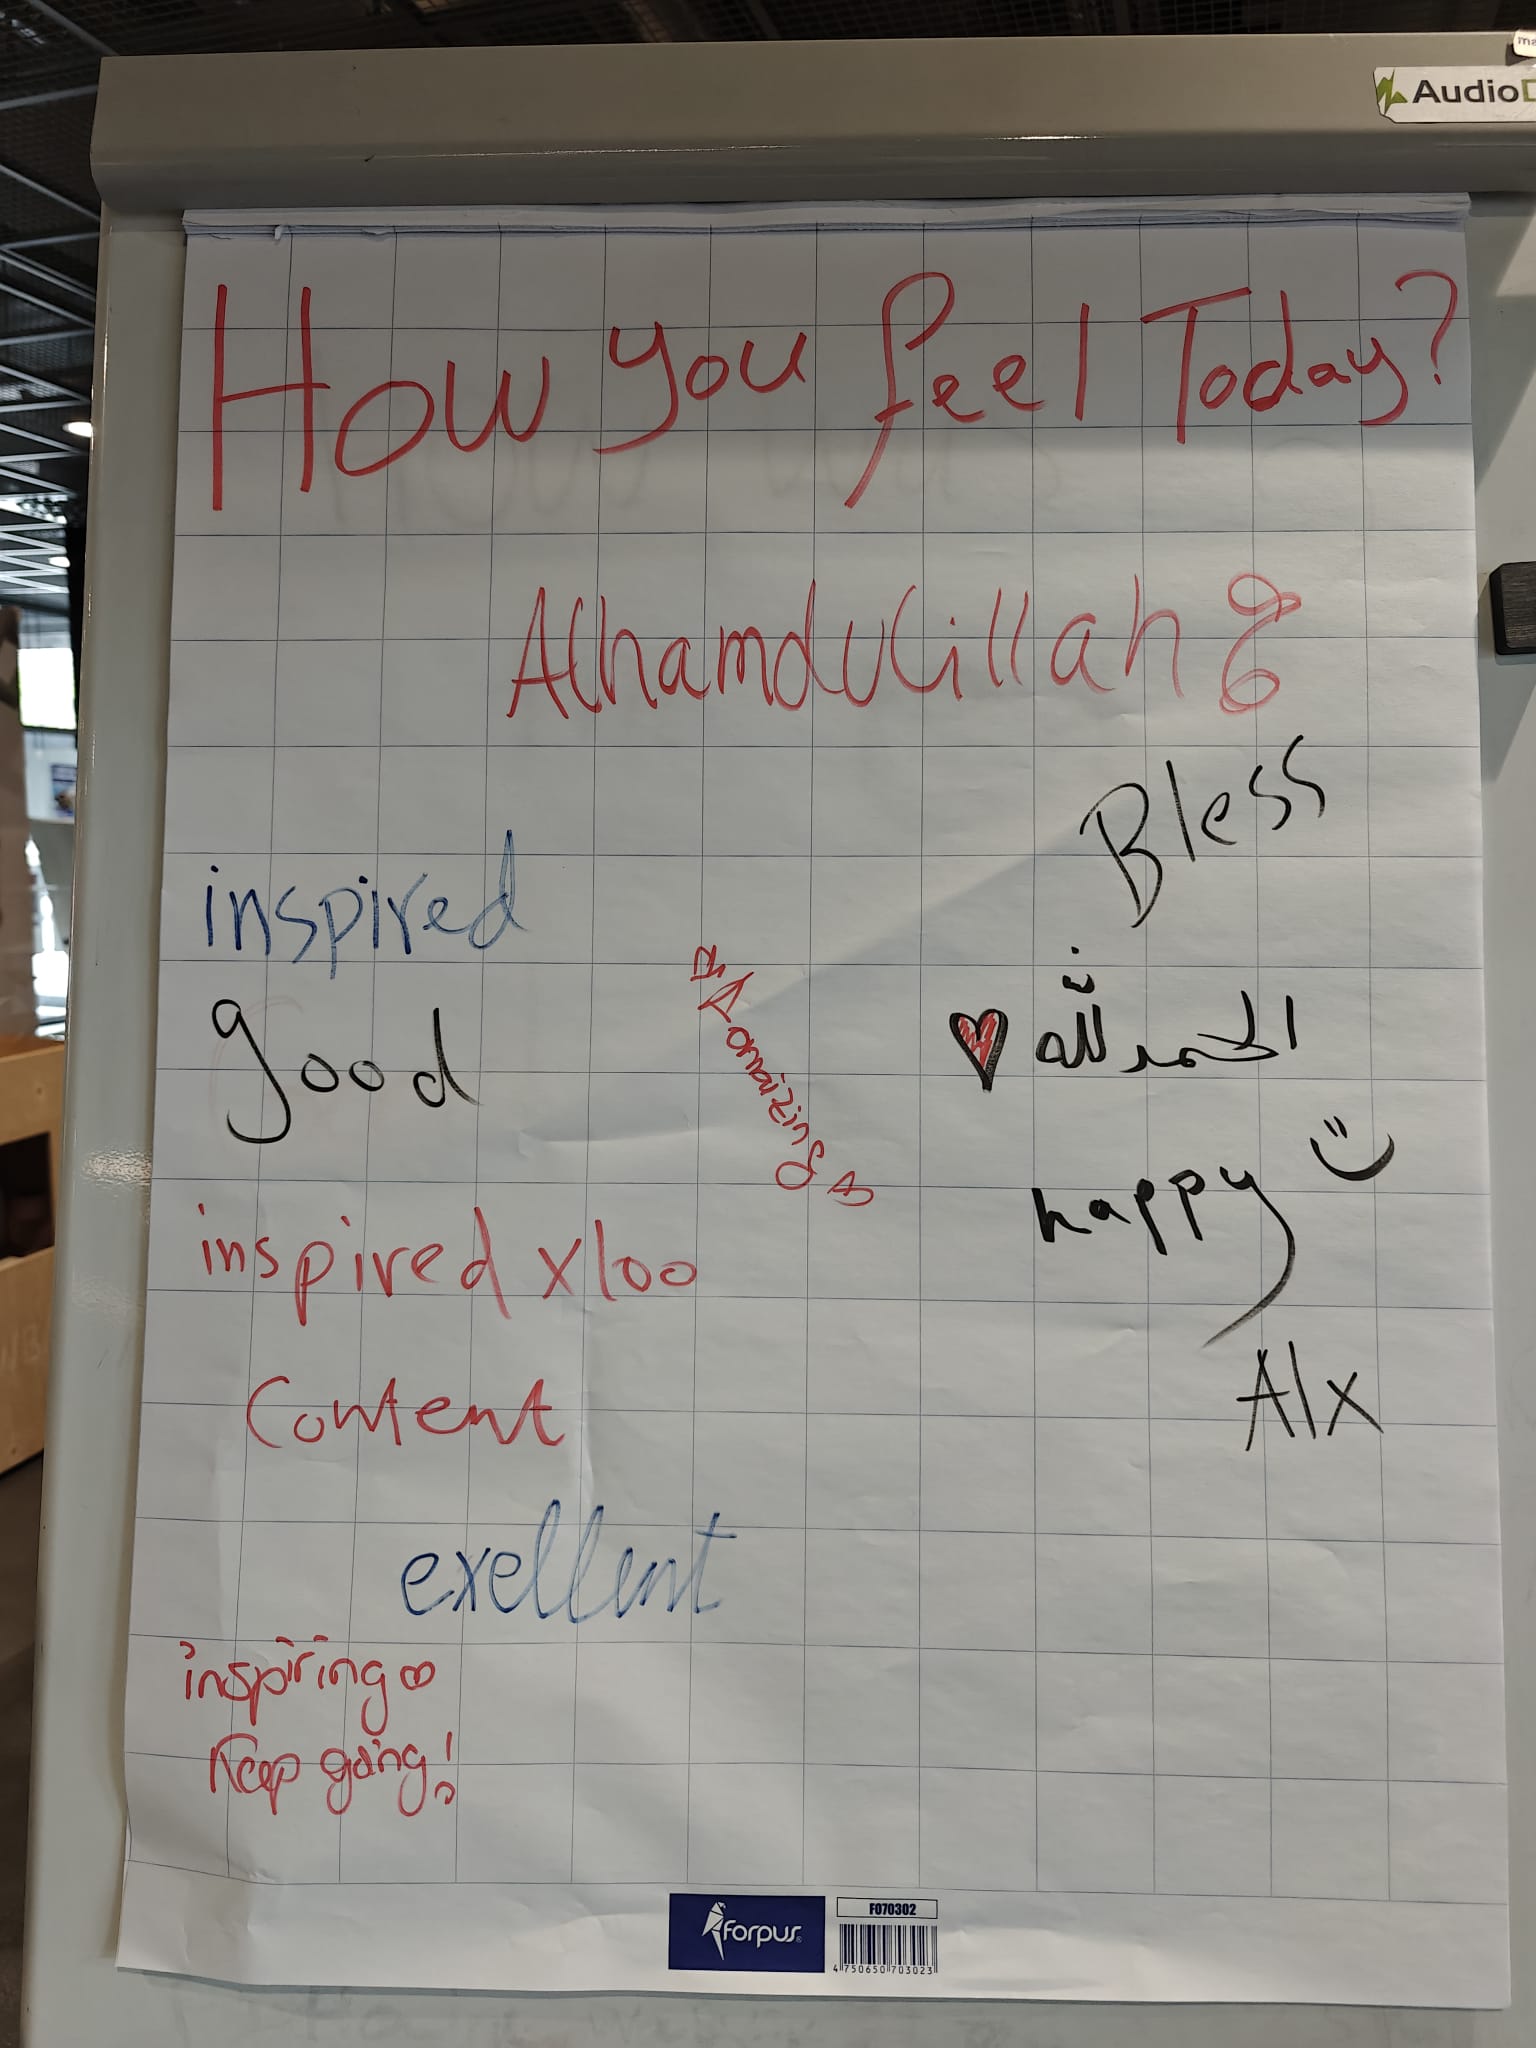 AudioD
How you feel Today?
Alhamdulillah
Bless
inspired
good
Amaizing
الحمد لله
happy
inspired x100
Content
Alx
exellent
inspiring
Keep going!
forpus
F070302
4 750650 703023